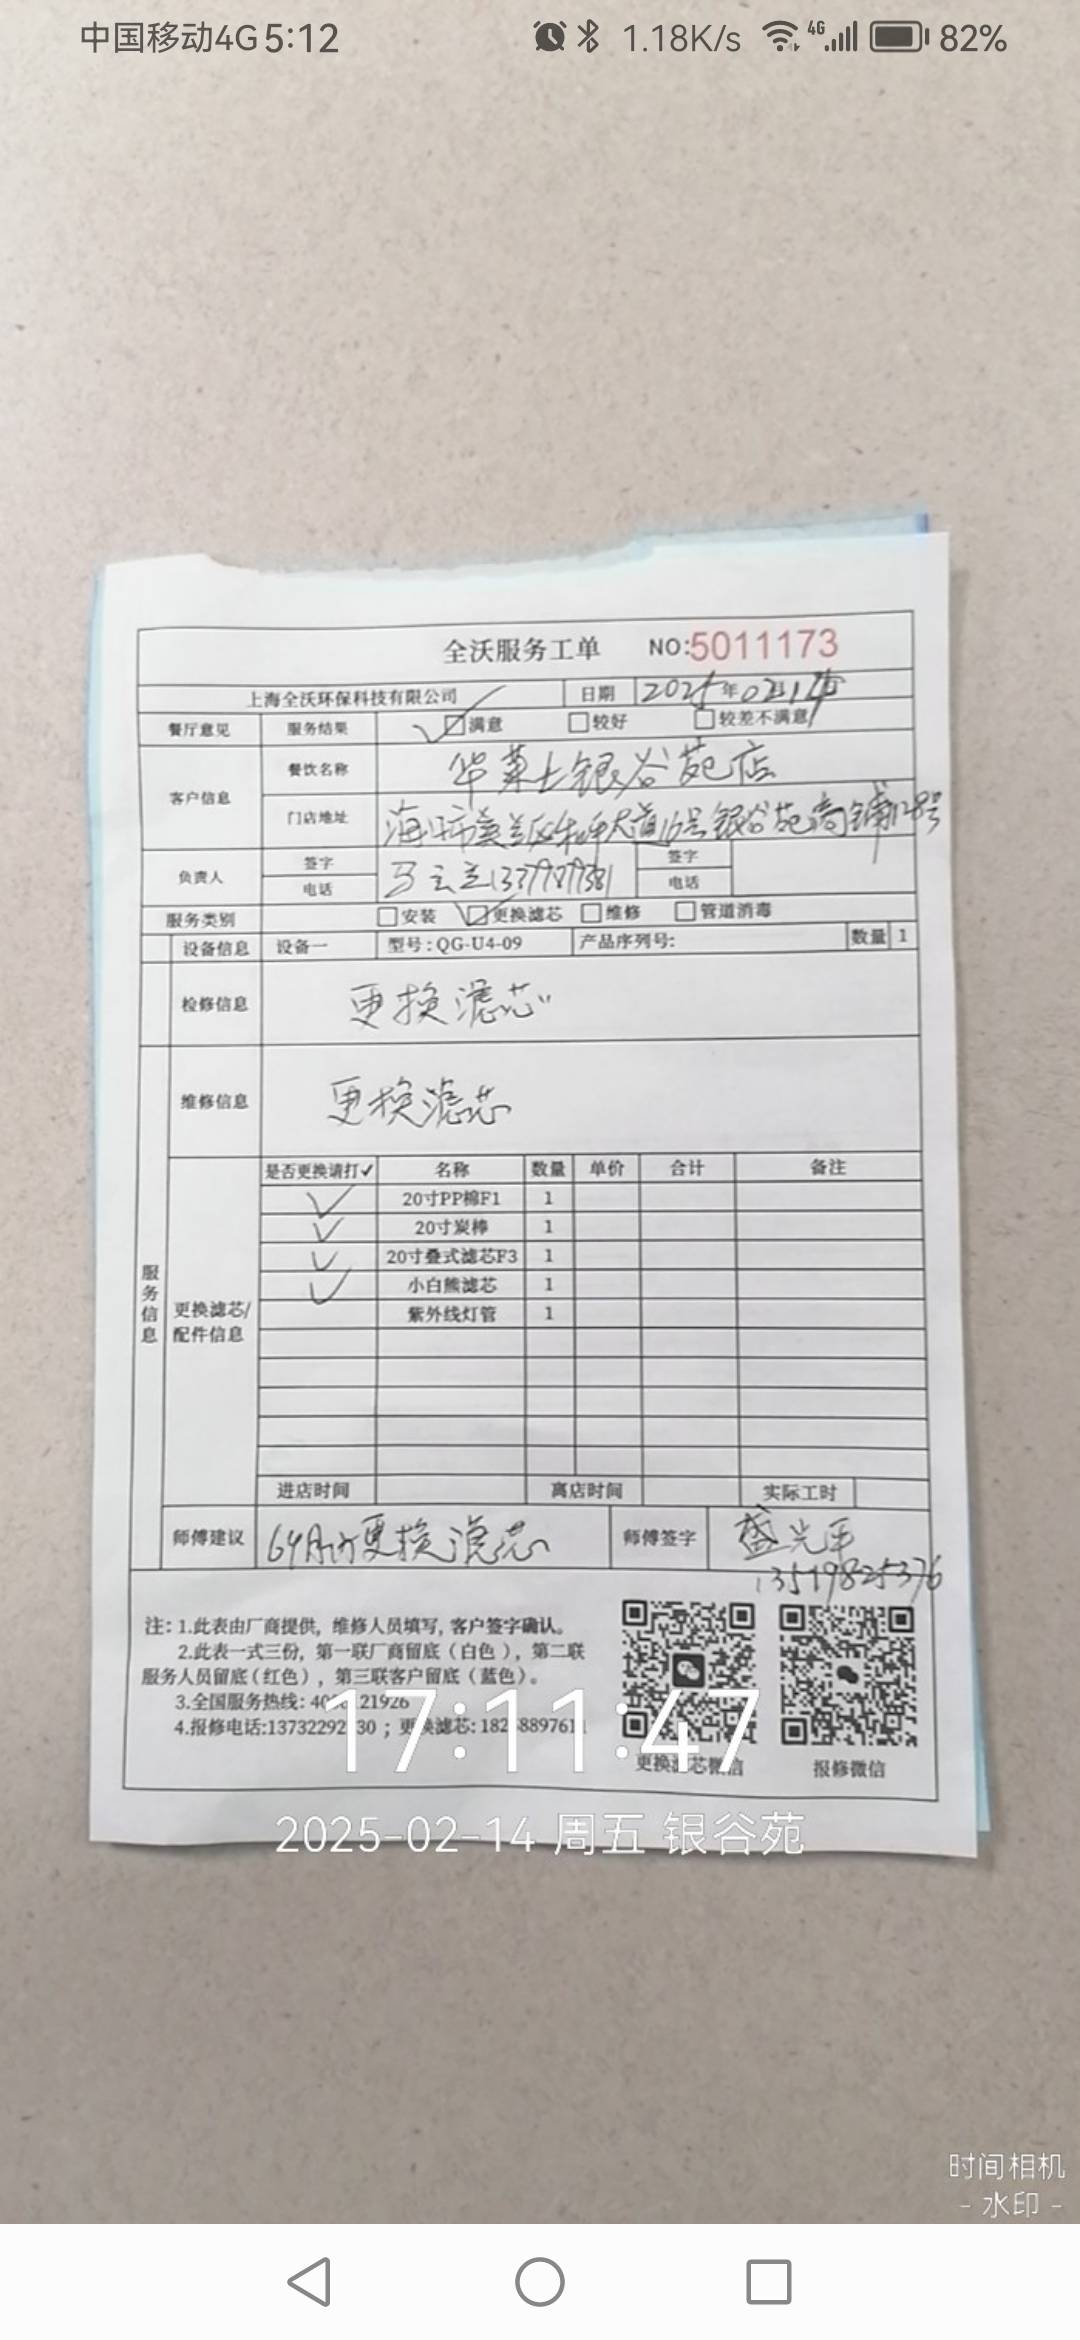 中国移动4G 5:12 1.18K/s 4G 82%
全沃服务工单 NO:5011173
上海全沃环保科技有限公司 日期 2025年02月14
餐厅意见 服务结果 满意 较好 较差不满意
客户信息 餐饮名称 华莱士银谷苑店
门店地址 海口市美兰区和平大道16号银谷苑商铺128号
负责人 签字 签字
电话 电话
服务类别 安装 更换滤芯 维修 管道消毒
设备信息 设备一 型号:QG-U4-09 产品序列号: 数量 1
检修信息 更换滤芯
维修信息 更换滤芯
服务信息
更换滤芯/配件信息
是否更换请打✓ 名称 数量 单价 合计 备注
✓ 20寸PP棉F1 1
✓ 20寸炭棒 1
✓ 20寸叠式滤芯F3 1
✓ 小白熊滤芯 1
紫外线灯管 1
进店时间 离店时间 实际工时
师傅建议 更换滤芯 师傅签字 盛光平
13519825376
注: 1.此表由厂商提供, 维修人员填写, 客户签字确认。
2.此表一式三份, 第一联厂商留底 (白色), 第二联
服务人员留底 (红色), 第三联客户留底 (蓝色)。
3.全国服务热线:
4.报修电话: ; 更换滤芯:
更换滤芯微信 报修微信
17:11:47
2025-02-14 周五 银谷苑
时间相机
- 水印 -